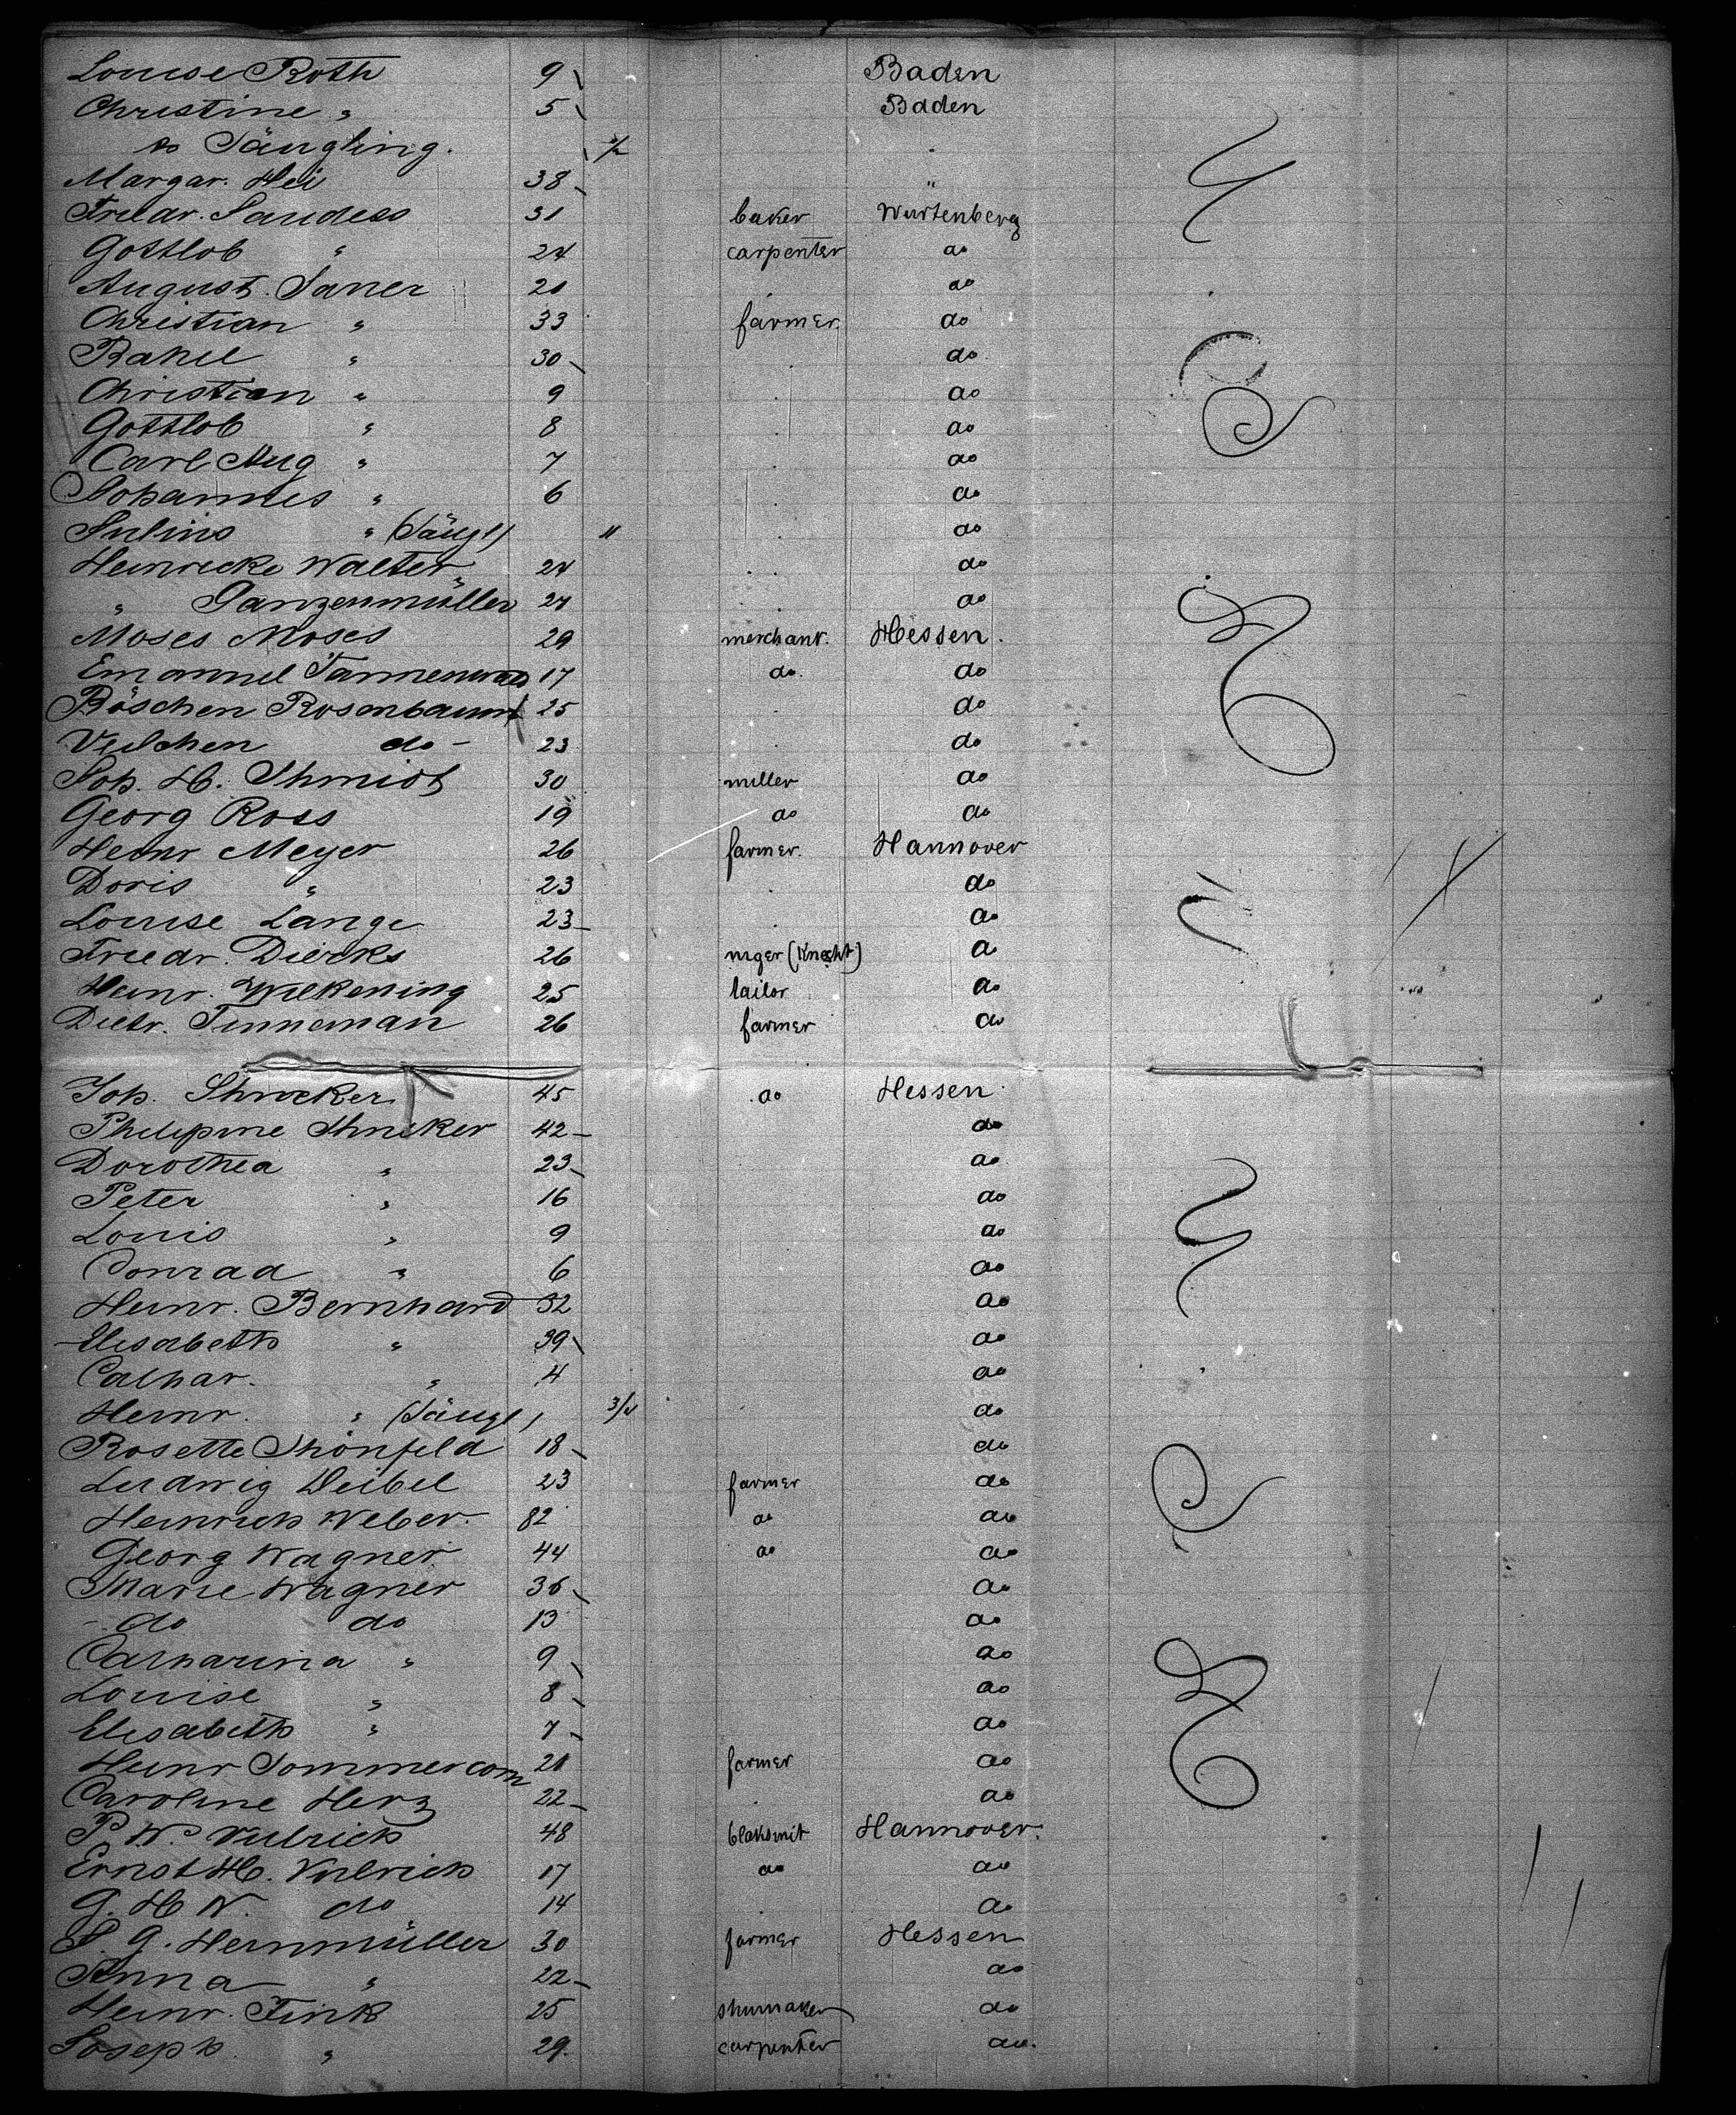 Louise Roth 9 Baden
Christine " 5 Baden
do Säugling. 1/2 "
Margar. Hei 38 "
Friedr. 31 baker Wurtenberg
Gottlob " 24 carpenter do
August. Saner 20 do
Christian " 33 farmer. do
Rahel " 30 do
Christian " 9 do
Gottlob " 8 do
Carl Aug " 7 do
Johannes " 6 do
Julius " (Säugl) " do
Heinricke Walter 24 do
" Ganzenmüller 24 do
Moses Moses 29 merchant. Hessen.
Emanuel 17 do. do
Röschen Rosenbaum 25 do
Veilchen do - 23 do
Joh. H. Shmidt 30 miller do
Georg Ross 19 do do
Heinr Meyer 26 farmer. Hannover
Doris " 23 do
Louise Lange 23 do
Friedr. Diercks 26 (Knecht) do
Heinr. Wilkening 25 tailor do
Dietr. Tinneman 26 farmer do
Joh. 45 do Hessen
Philipine 42 do
Dorothea " 23 do
Peter " 16 do
Louis " 9 do
Conrad " 6 do
Heinr. Bernhard 32 do
Elisabeth " 39 do
Cathar. " 4 do
Heinr. " (Säugl) 3/4 do
Rosette Shönfeld 18 do
Ludwig Deibel 23 farmer do
Heinrich Weber. 82 do do
Georg Wagner 44 do do
Marie Wagner 36 do
do do 13 do
Catharina " 9 do
Louise " 8 do
Elisabeth " 7 do
Heinr Sommercorn 21 farmer do
Caroline Herz 22 do
P. W. 48 blaksmit Hannover.
Ernst H. 17 do do
G. H W. do 14 do
G. Hernmüller 30 farmer Hessen
Anna " 22 do
Heinr. Fink 25 shumaker do
Joseph " 29. carpenter do.